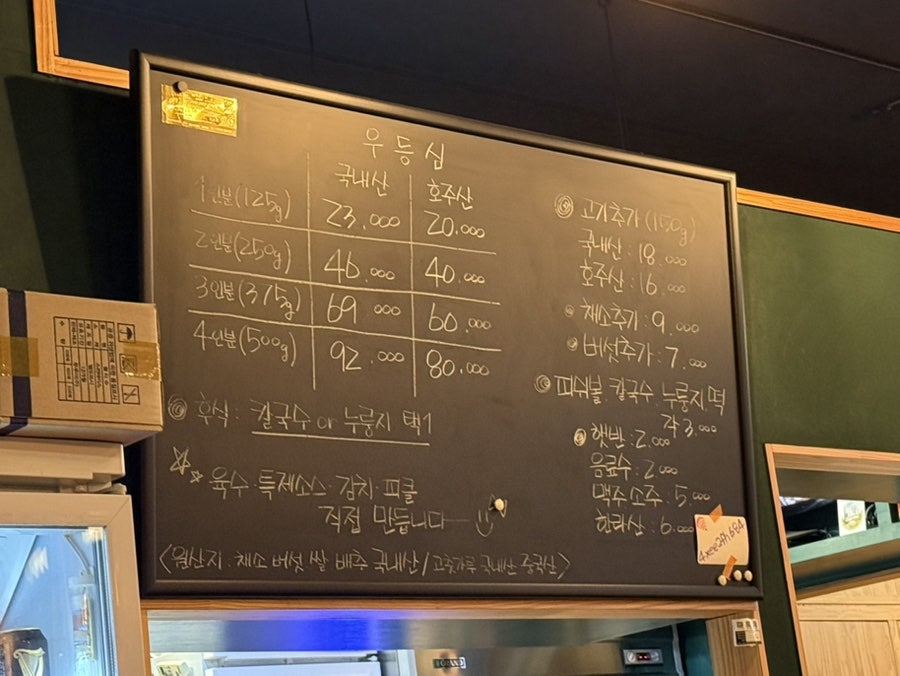 우등심
국내산 호주산
1인분(125g) 23.000 20.000
2인분(250g) 46.000 40.000
3인분(375g) 69.000 60.000
4인분(500g) 92.000 80.000
후식: 칼국수 or 누룽지 택1
육수·특제소스·김치·피클
직접 만듭니다
<원산지: 채소 버섯 쌀 배추 국내산/고춧가루 국내산 중국산>
고기추가(150g)
국내산: 18.000
호주산: 16.000
채소추가: 9.000
버섯추가: 7.000
피쉬볼. 칼국수. 누룽지. 떡
각 3.000
햇반: 2.000
음료수: 2.000
맥주 소주: 5.000
한라산: 6.000